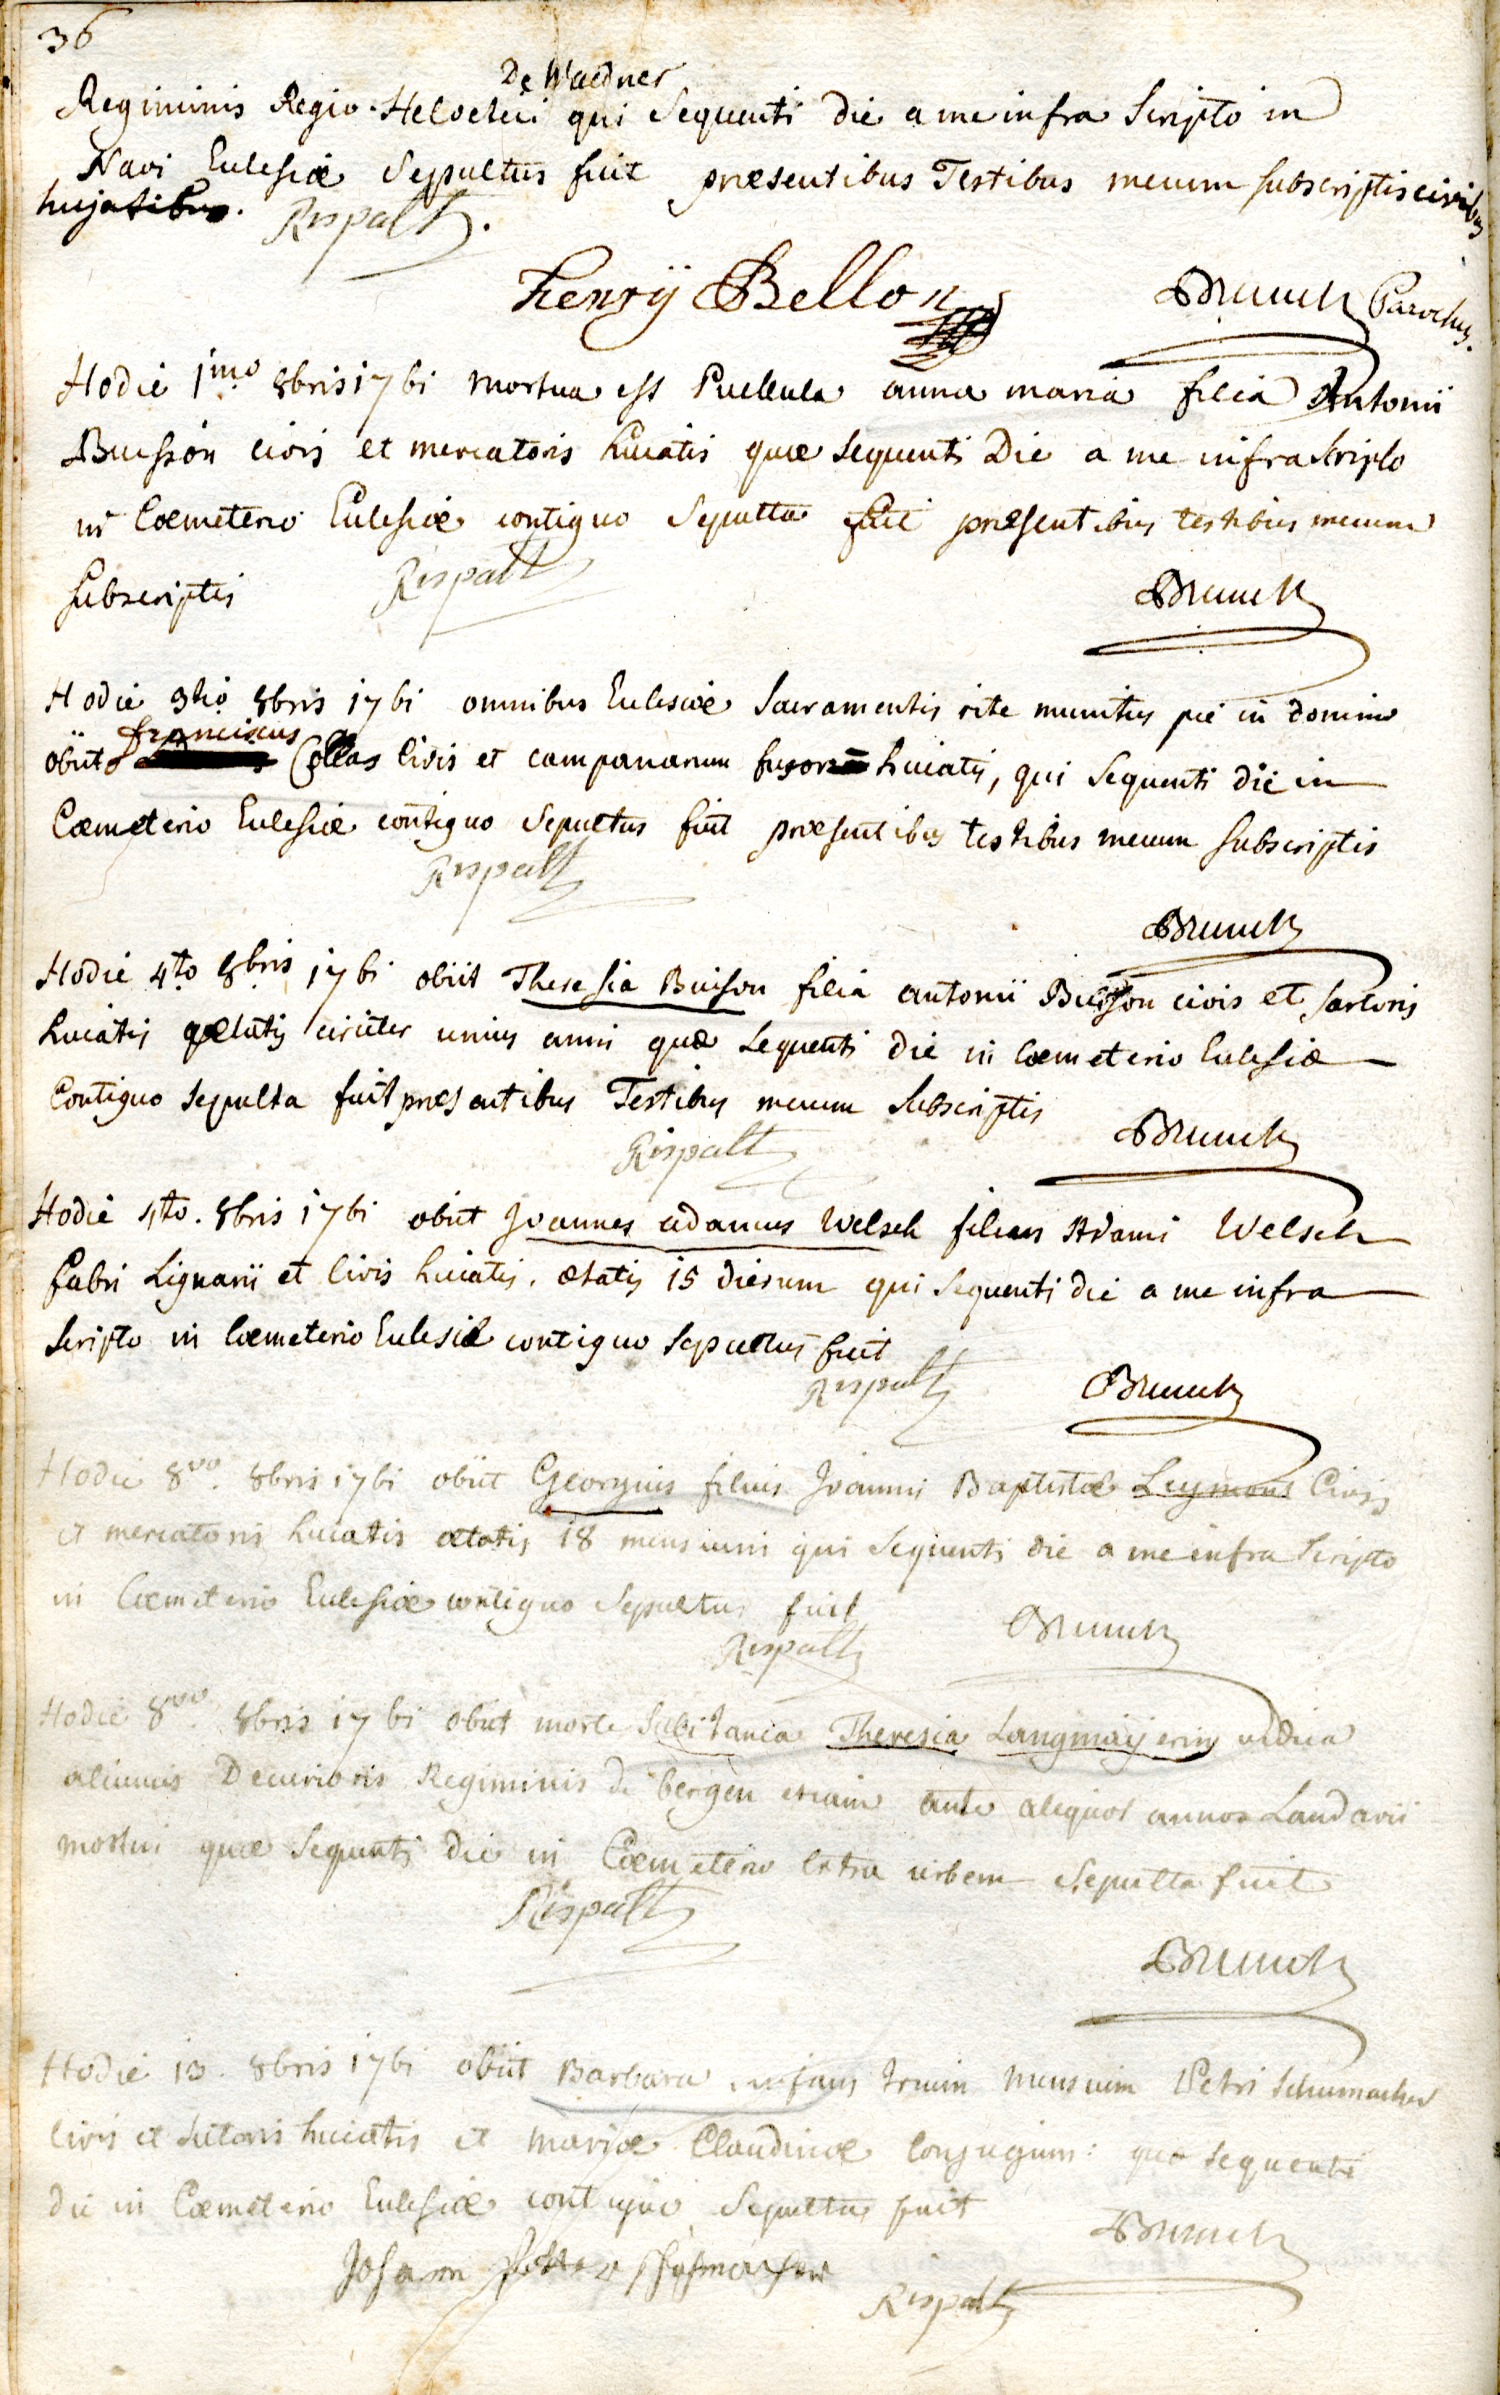 36
De Waldner
Regiminis Regio-Helvetici qui sequenti die a me infra scripto in
Navi Eclesiæ sepultus fuit præsentibus Testibus mecum subscriptis civibus
hujatibus. Rispalt.
henrÿ Bellon Brunck Parochus.
Hodie 1mo 8bris 1761 mortua est Puellula anna maria filia Antonii
Buisson civis et mercatoris huiatis quæ sequenti Die a me infra scripto
in Cœmeterio Eclesiæ contiguo sepulta fuit præsentibus testibus mecum
subscriptis Rispalt Brunck
Hodie 3tio 8bris 1761 omnibus Eclesiæ sacramentis rite munitus pie in domino
franciscus
obiit Collas Civis et campanarum fusor huiatis, qui sequenti die in
Cœmeterio Eclesiæ contiguo sepultus fuit præsentibus testibus mecum subscriptis
Rispalt
Brunck
Hodie 4to 8bris 1761 obiit Theresia Buisson filia antonii Buisson civis et sartoris
huiatis ætatis circiter unius anni quæ sequenti die in Cœmeterio Eclesiæ
Contiguo sepulta fuit præsentibus Testibus mecum subscriptis
Rispalt Brunck
Hodie 4to. 8bris 1761 obiit Joannes adamus Welsch filius Adami Welsch
fabri Lignarii et Civis huiatis. ætatis 15 dierum qui sequenti die a me infra
scripto in Cœmeterio Eclesiæ contiguo sepultus fuit
Rispalt Brunck
Hodie 8vo. 8bris 1761 obiit Georgius filius Joannis Baptistæ Leymont Civis
et mercatoris huiatis ætatis 18 mensium qui sequenti die a me infra scripto
in Cœmeterio Eclesiæ contiguo sepultus fuit
Rispalt Brunck
Hodie 8vo. 8bris 1761 obiit morte subitanea Theresia Langmaÿerin vidua
alicuius Decurionis Regiminis de bergen etiam ante aliquot annos Landavii
mortui quæ sequenti die in Cœmeterio extra urbem sepulta fuit
Rispalt
Brunck
Hodie 13. 8bris 1761 obiit Barbara infans trium mensium Petri Schumacher
Civis et sutoris huiatis et mariæ Claudinæ Conjugum: quæ sequenti
die in Cœmeterio Eclesiæ contiguo sepultus fuit Brunck
Johann
Rispalt